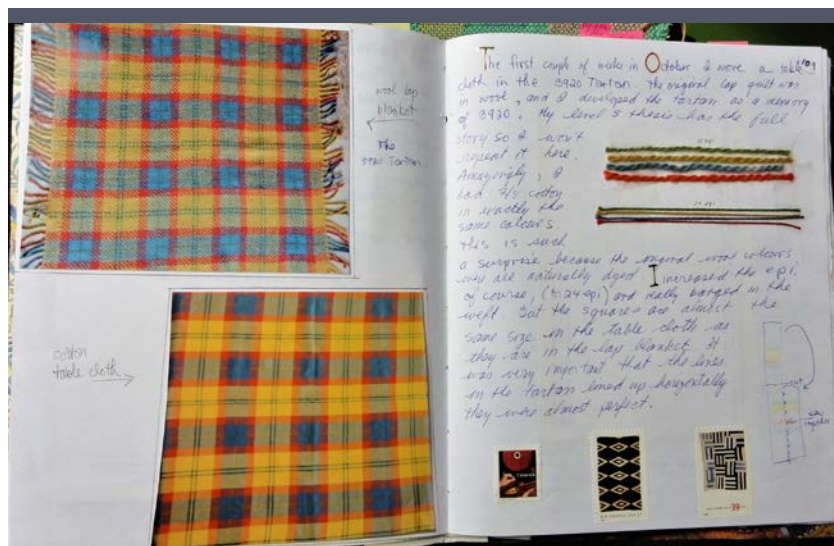 wool lap
blanket
The
3920 Tartan
cotton
table cloth
The first couple of weeks in October I wove a table
cloth in the 3920 Tartan. The original lap quilt was
in wool, and I developed the tartan as a memory
of 3920. My level 5 thesis has the full
story so I won't
repeat it here.
Amazingly, I
had 2/8 cotton
in exactly the
same colours.
This is such
a surprise because the original wool colours
were all naturally dyed. I increased the epi.
of course, (to 24 epi) and really banged in the
weft. But the squares are almost the
same size in the table cloth as
they are in the lap blanket. It
was very important that the lines
in the tartan lined up horizontally
they were almost perfect.
39